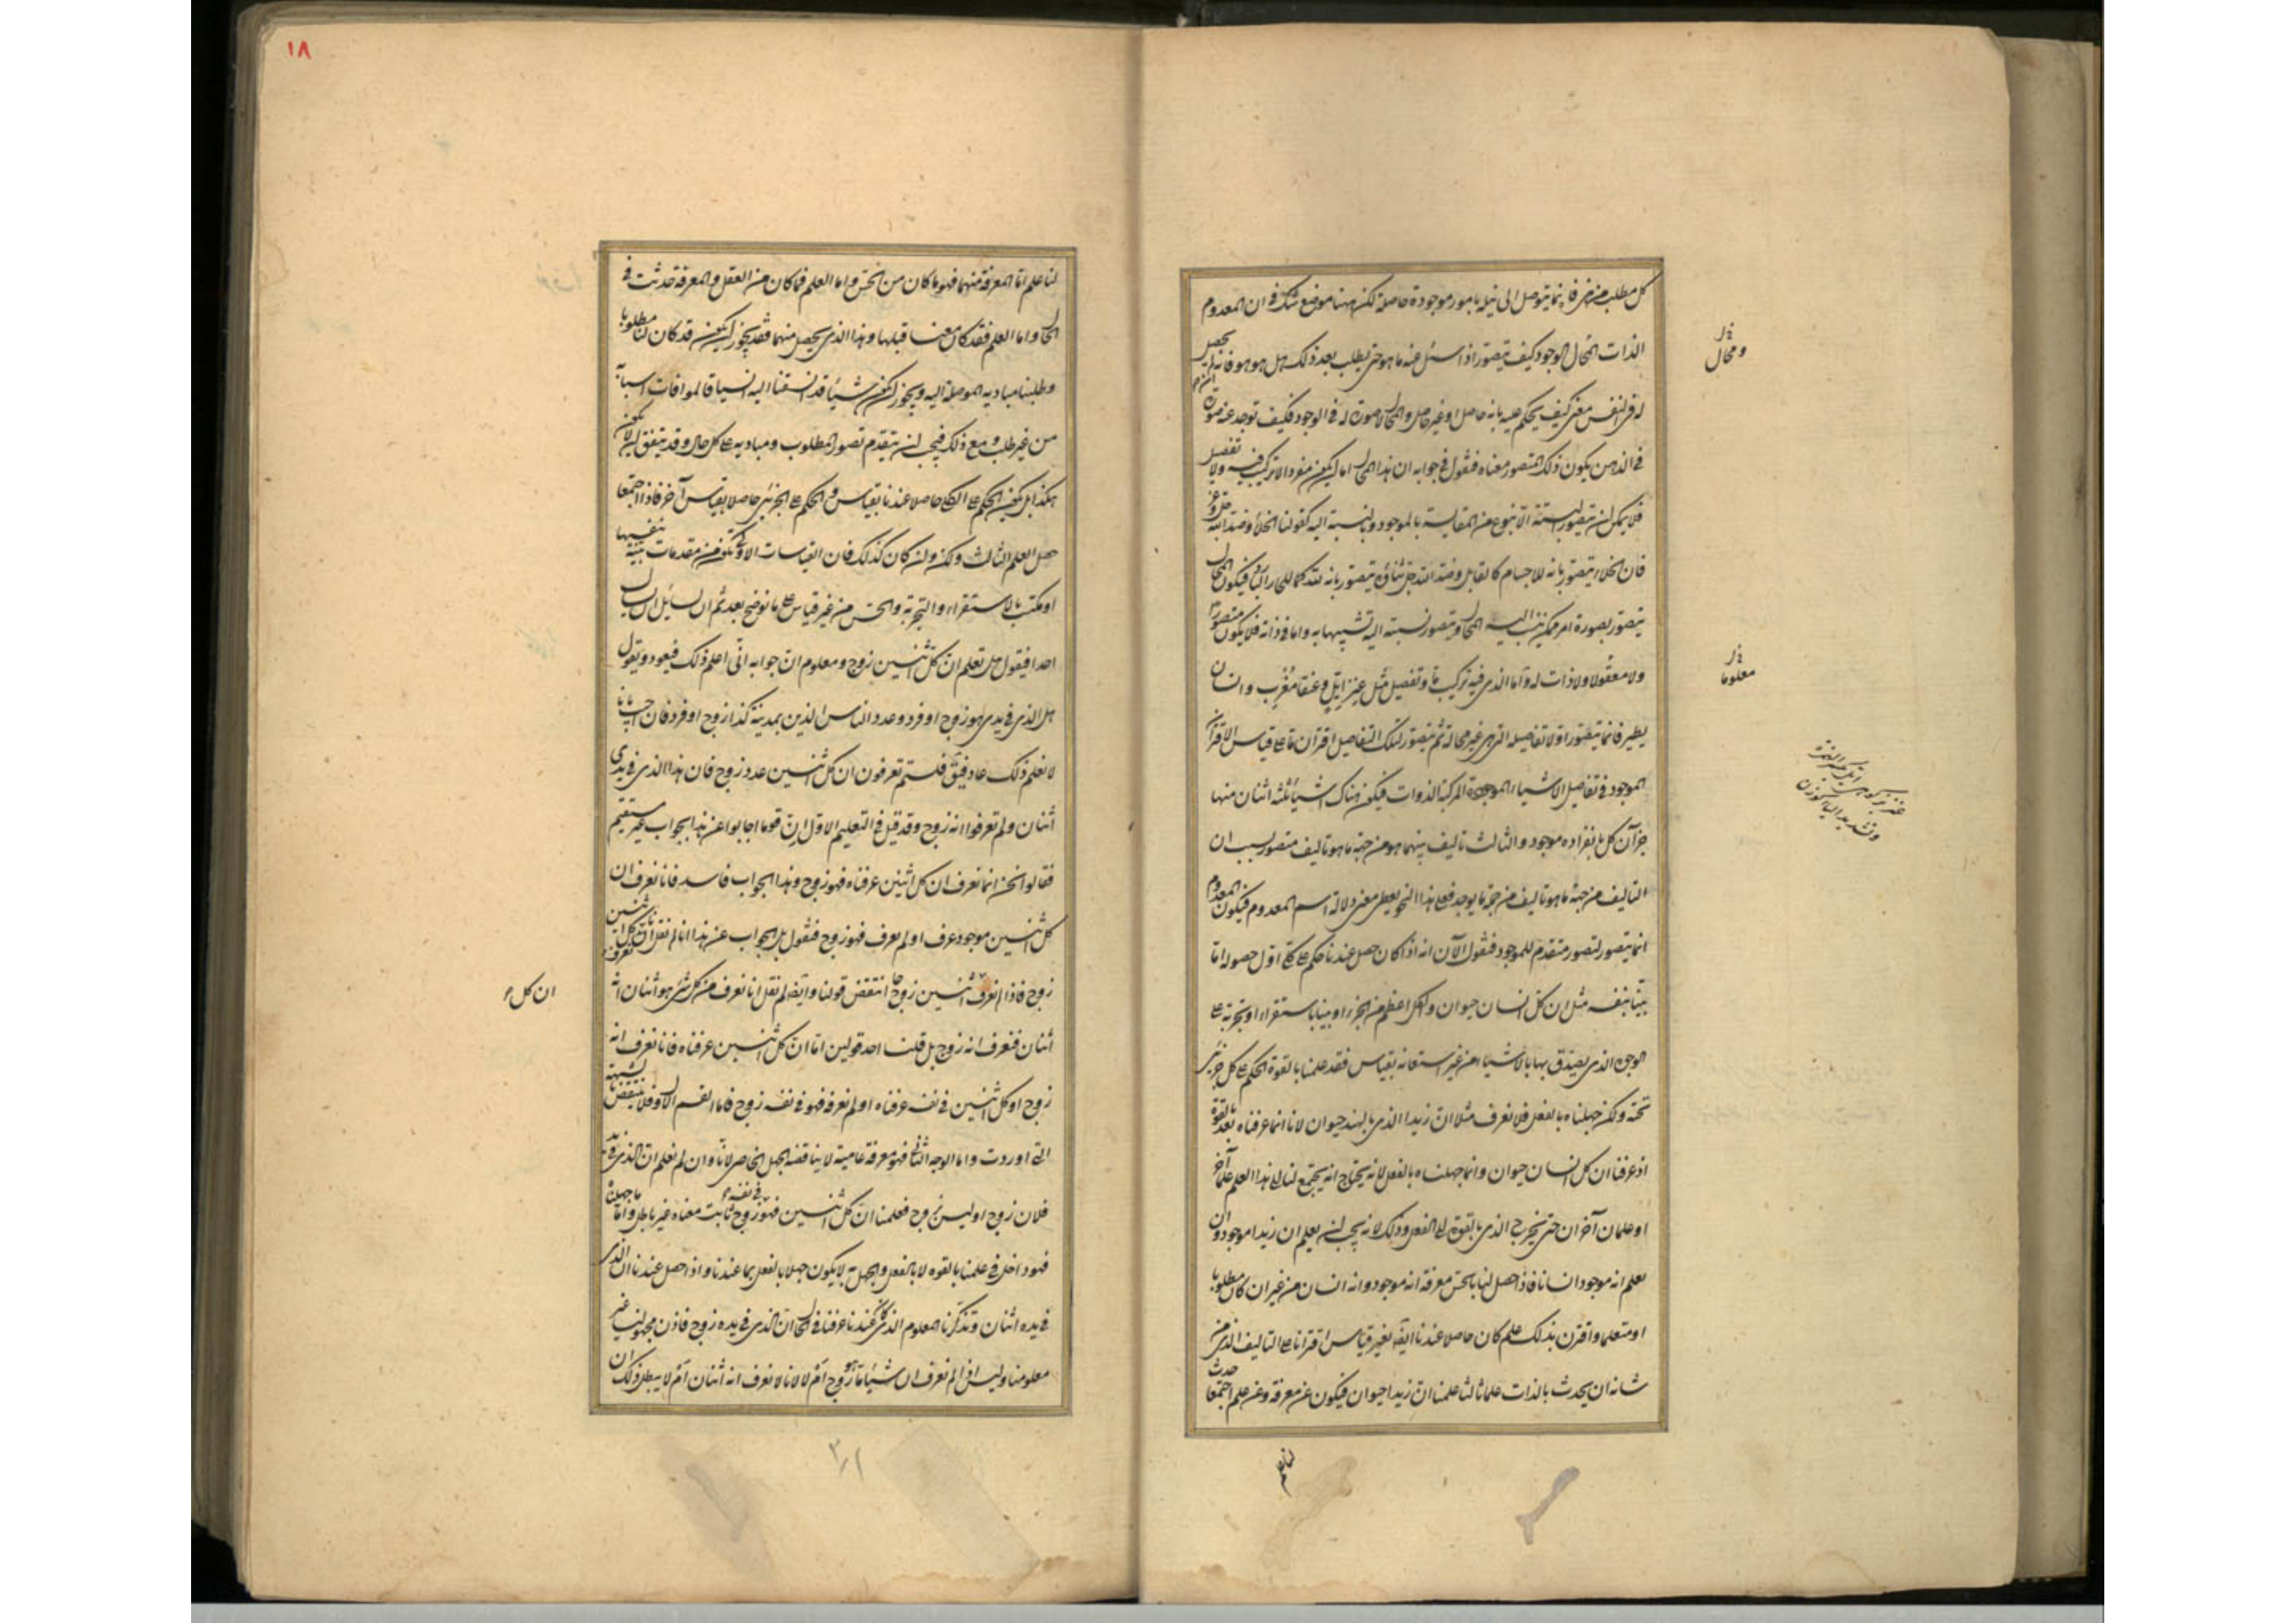 كل مطلب من هذه فانما يتوصل الى نيله بامور موجودة حاصلة لكن ههنا موضع شك فى ان المعدوم
الذات المحال الوجود كيف يتصور اذا سئل عنه ما هو حتى يطلب بعد ذلك هل هو فانه ان لم يحصل
له فى النفس معنى كيف يحكم عليه بانه حاصل او غير حاصل والمحال لا صورة له فى الوجود فكيف توجد عنه صورة
فى الذهن يكون ذلك المتصور معناه فنقول فى جوابه ان هذا المحال اما ان يكون مفردا لا تركيب فيه ولا تفصيل
فلا يمكن ان يتصور البتة الا بنوع من المقايسة بالموجود وبالنسبة اليه كقولنا الخلأ وضد الله
فان الخلاء يتصور بانه للاجسام كالقابل وضد الله يتصور بانه لله كما للحار البارد فيكون المحال
يتصور بصورة امر ممكن ينسب اليه المحال ويتصور نسبته اليه تشبيها به واما فى ذاته فلا يكون متصورا
ولا معقولا ولا ذات له واما الذى فيه تركيب ما وتفصيل مثل عنز ايل وعنقا مغرب وانسان
يطير فانما يتصور اولا تفاصيله التى هى غير محالة ثم يتصور لتلك التفاصيل اقتران ما على قياس الاقتران
الموجود فى تفاصيل الاشياء الموجودة المركبة الذوات فيكون هناك اشيا ثلثه اثنان منها
جزآن كل بانفراده موجود والثالث تاليف بينهما هو من جهة ما هو تاليف متصور بسبب ان
التاليف من جهة ما هو تاليف من جملة ما يوجد فعلى هذا النحو يعطى معنى دلالة اسم المعدوم فيكون المعدوم
انما يتصور لتصور متقدم للموجود فنقول الآن انه اذا كان حصل عندنا حكم على كلى اول حصوله اما
بينا بنفسه مثل ان كل انسان حيوان والكل اعظم من الجزء او بينا باستقراء او تجربة على
الوجوه الذى يصدق بها بالاشياء من غير استعانة بقياس فقد علمنا بالقوة الحكم على كل جزئى
تحته ولكن جهلناه بالفعل فلا نعرف مثلا ان زيدا الذى بالهند حيوان لانا انما عرفناه بعد بالقوة
اذ عرفنا ان كل انسان حيوان وانما جهلناه بالفعل لانه يحتاج ان يجتمع لنا الى هذا العلم علم آخر
او علمان آخران حتى يخرج الذى بالقوة الى الفعل وذلك لانه يجب ان يعلم ان زيدا موجود وان
يعلم انه موجود انسانا فاذا حصل لنا بالحس معرفة انه موجود وانه انسان من غير ان كان مطلوبا
او متعلما واقترن بذلك علم كان حاصلا عندنا ايضا بغير قياس اقترانا على التاليف الذى من
شانه ان يحدث بالذات علما ثالثا علمنا ان زيدا حيوان فيكون عن معرفة وعن علم اجتمعا حدث
لنا علم
ومحال
معلوما
لنا علم اما المعرفة منهما فهو ما كان من الحس واما العلم فما كان من العقل والمعرفة حدثت فى
الحال واما العلم فقد كان معنا قبلها وهذا الذى يحصل منهما فقد يجوز ان يكون قد كان لنا مطلوبا
وطلبنا مباديه الموصلة اليه ويجوز ان يكون شيئا قد انسقنا اليه انسياقا لموافات اسبابه
من غير طلب ومع ذلك فيجب ان يتقدم تصور المطلوب ومباديه على كل حال وقد يتفق ان لا يكون
هكذا بل يكون الحكم على الكلى حاصلا عندنا بقياس والحكم على الجزئى حاصلا بقياس آخر فاذا اجتمعا
حصل العلم الثالث ولكن وان كان كذلك فان القياسات الاولى تكون من مقدمات بينة بنفسها
او مكتسبة بالاستقراء والتجربة والحس من غير قياس على ما نوضح بعد ثم ان لسائل ان يسأل
احدا فيقول هل تعلم ان كل اثنين زوج ومعلوم ان جوابه انى اعلم ذلك فيعود ويقول
هل الذى فى يدى هو زوج او فرد وعدد الناس الذين بمدينة كذا زوج او فرد فان اجيب بانا
لا نعلم ذلك عاد فيقول فلستم تعرفون ان كل اثنين عدد زوج فان هذا الذى فى يدى
اثنان ولم تعرفوا انه زوج وقد قيل فى التعليم الاول ان قوما اجابوا عن هذا بجواب غير مستقيم
فقالوا نحن انما نعرف ان كل اثنين عرفناه فهو زوج وهذا الجواب فاسد فانا نعرف ان
كل اثنين موجود عرف او لم يعرف فهو زوج فنقول بل الجواب عن هذا انا لم نقل ان كل اثنين نعرفه
زوج فاذا لم نعرف اثنين زوجا انتقض قولنا وايضا لم نقل انا نعرف من كل شئ هو اثنان انه
اثنان فنعرف انه زوج بل قلنا احد قولين اما ان كل اثنين عرفناه فانا نعرف انه
زوج او كل اثنين فى نفسه عرفناه او لم نعرفه فهو فى نفسه زوج فاما القسم الاول فلا ينتقض بالشبهة
التى اوردت واما الوجه الثانى فهو معرفة عامية لا يناقضه الجهل الخاص لانا وان لم نعلم ان الذى فى يد
فلان زوج او ليس بزوج فعلمنا ان كل اثنين فهو فى نفسه زوج ثابت معناه غير باطل واما ما جهلناه
فهو داخل فى علمنا بالقوه لا بالفعل والجهل به لا يكون جهلا بالفعل بما عندنا واذا حصل عندنا ان الذى
فى يده اثنان وتذكرنا المعلوم الذى كان عندنا عرفنا فى الحال ان الذى فى يده زوج فاذن مجهولنا غير
معلومنا وليس اذا لم نعرف ان شيئا ما هو زوج ام لا لانا لا نعرف انه اثنان ام لا يبطل ذلك ان
ان كل
١٨